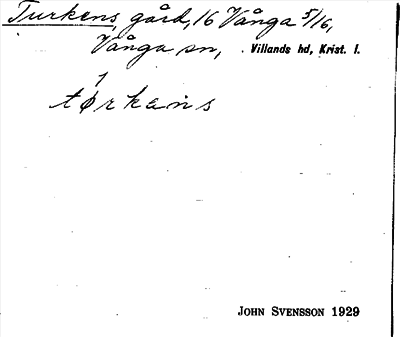 Turkens, gård, 16 Vånga 5/16,
Vånga sn, Villands hd, Krist. l.
tørkens
JOHN SVENSSON 1929